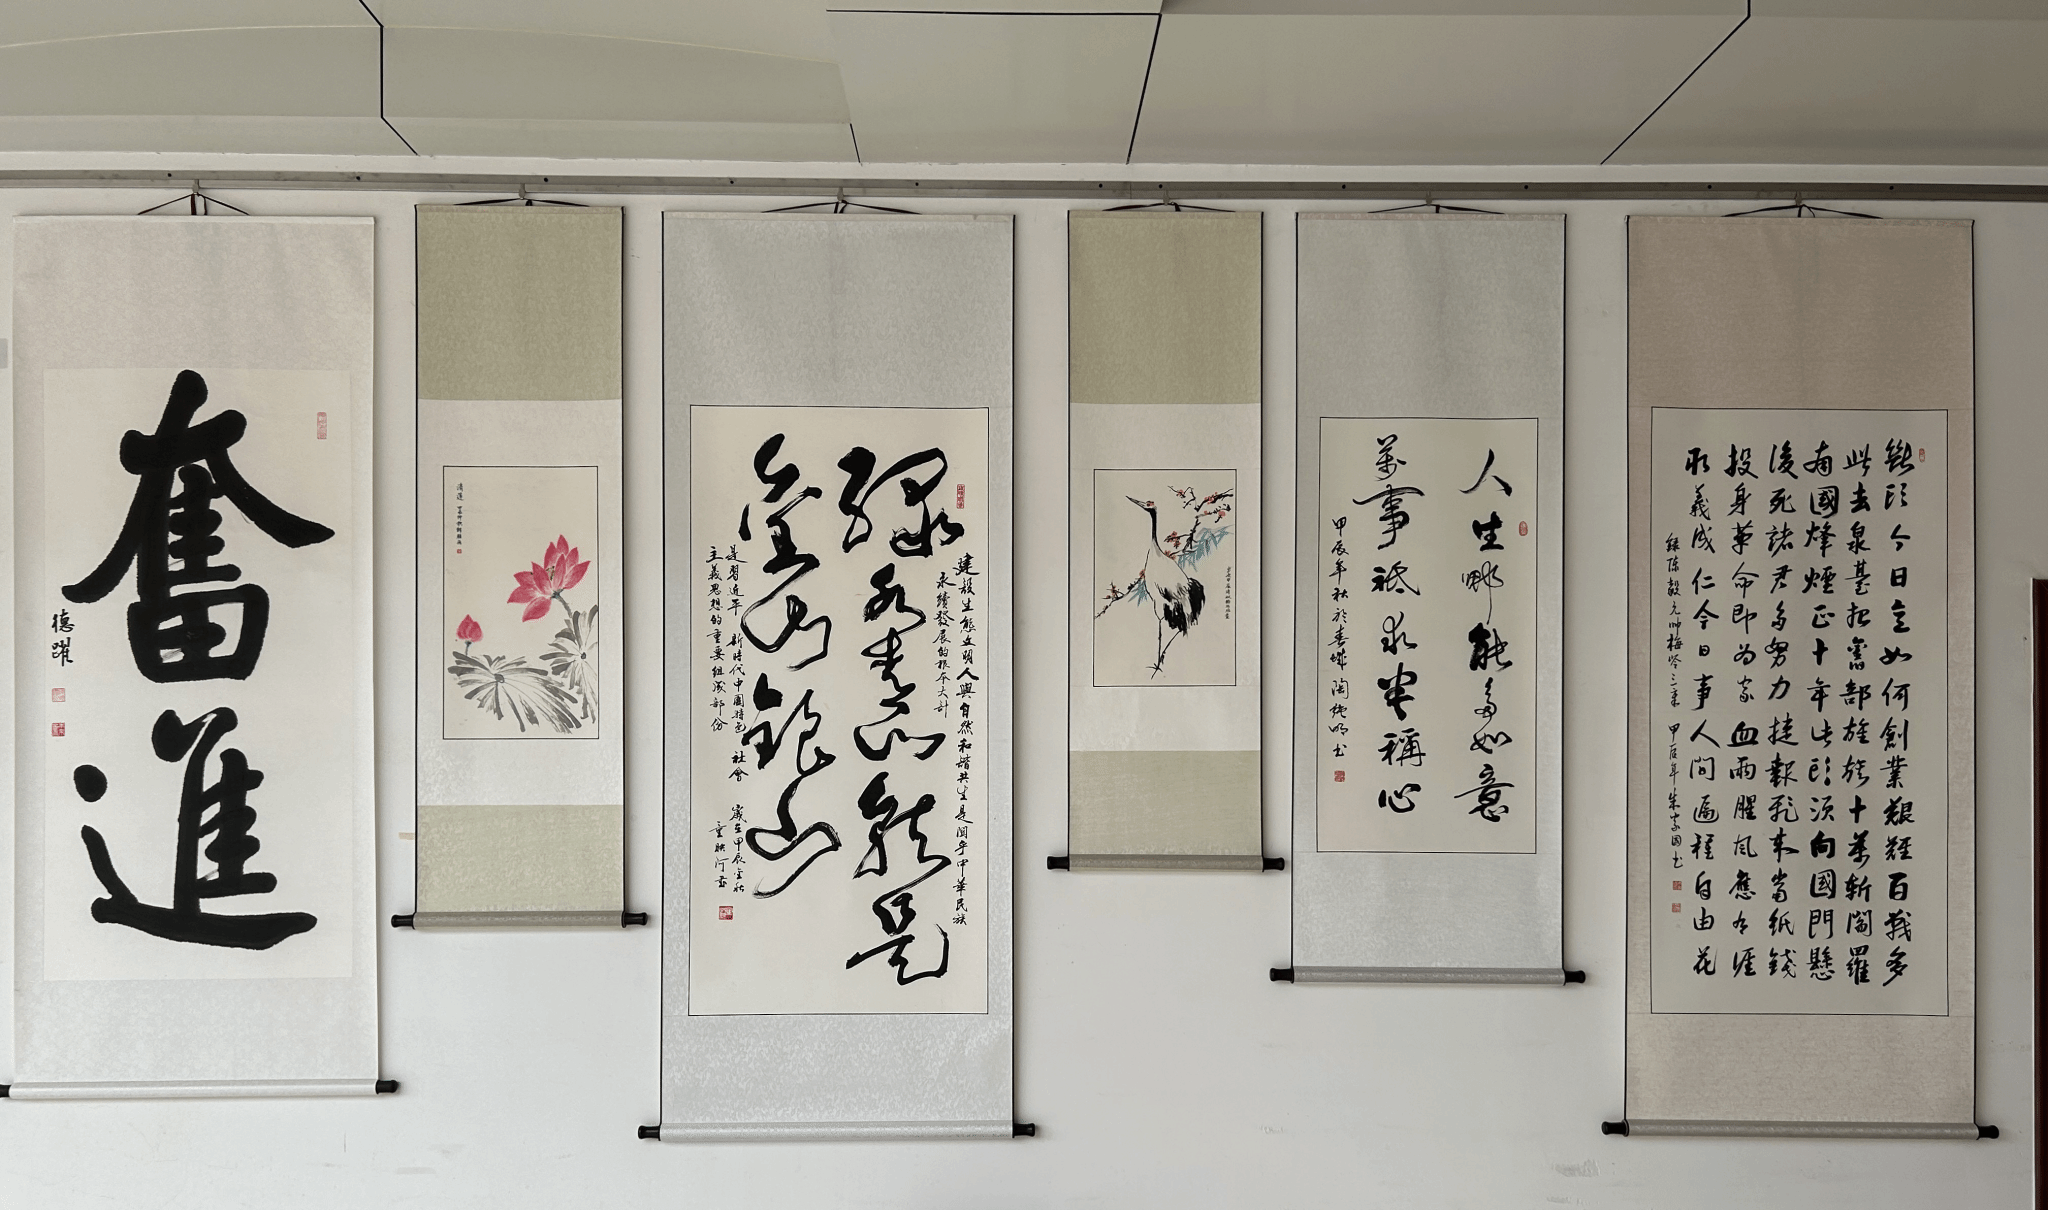 奮進
德躍
清蓮
綠水青山就是
金山銀山
建設生態文明人與自然和諧共生是関乎中華民族
永續發展的根本大計
是習近平 新時代中國特色 社會
主義思想的重要組成部份
歲在甲辰金秋
人生哪能多如意
萬事祗求半稱心
甲辰年秋於春城陶純明書
斷頭今日意如何創業艱難百戰多
此去泉臺招舊部旌旗十萬斬閻羅
南國烽煙正十年此頭須向國門懸
後死諸君多努力捷報飛來當紙錢
投身革命即為家血雨腥風應有涯
取義成仁今日事人間遍種自由花
錄陳毅元帥梅岺三章 甲辰年朱家國書